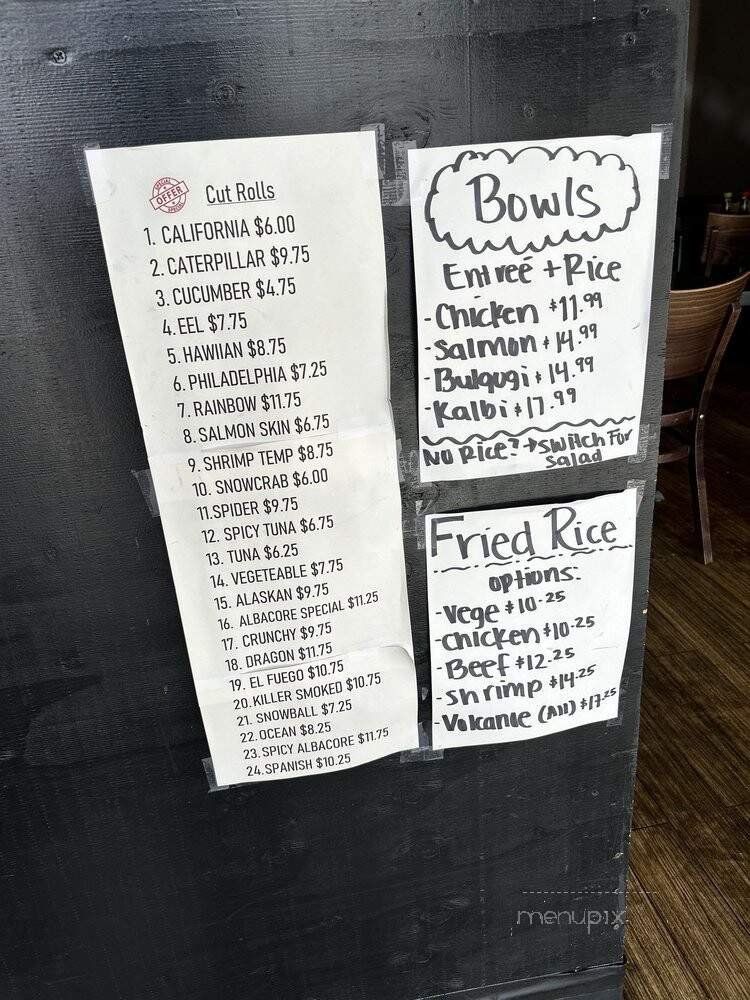 SPECIAL
OFFER
SPECIAL
Cut Rolls
1. CALIFORNIA $6.00
2. CATERPILLAR $9.75
3. CUCUMBER $4.75
4. EEL $7.75
5. HAWIIAN $8.75
6. PHILADELPHIA $7.25
7. RAINBOW $11.75
8. SALMON SKIN $6.75
9. SHRIMP TEMP $8.75
10. SNOWCRAB $6.00
11.SPIDER $9.75
12. SPICY TUNA $6.75
13. TUNA $6.25
14. VEGETEABLE $7.75
15. ALASKAN $9.75
16. ALBACORE SPECIAL $11.25
17. CRUNCHY $9.75
18. DRAGON $11.75
19. EL FUEGO $10.75
20.KILLER SMOKED $10.75
21. SNOWBALL $7.25
22. OCEAN $8.25
23. SPICY ALBACORE $11.75
24.SPANISH $10.25
Bowls
Entreé + Rice
-Chicken $11.99
-Salmon $14.99
-Bulgugi $14.99
-Kalbi $17.99
No Rice? → switch For
Salad
Fried Rice
options:
-Vege $10.25
-Chicken $10.25
-Beef $12.25
-shrimp $14.25
-Volcanue (All) $17.25
menupix